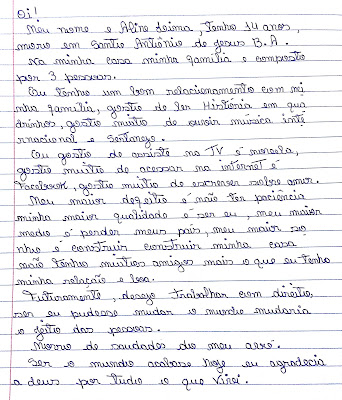 Oi!
Meu nome e Aline Leima, tenho 14 anos,
moro em Santo Antônio de Jesus B.A.
Na minha casa minha família e composta
por 3 pessoas.
Eu tenho um bom relacionamento com mi
nha família, gosto de ler História em qua
drinhos, gosto muito de ouvir música inte
rnacional e Sertanejo.
Ou gosto de assiste na TV é novela,
gosto muito de acessar na internet é
Facebook, gosto muito de escrever sobre amor.
Meu maior defeito é não ter paciência
minha maior qualidade e ser eu, meu maior
medo e perder meus pais, meu maior so
nho é construir construir minha casa
não tenho muitos amigos mais o que eu tenho
minha relação e boa.
Futuramente, desejo trabalhar com direito,
ser eu pudesse mudar o mundo mudaria
o jeito das pessoas.
Morro de saudades do meu avô.
Ser o mundo acabase hoje eu agradecia
a deus por tudo o que vivei.